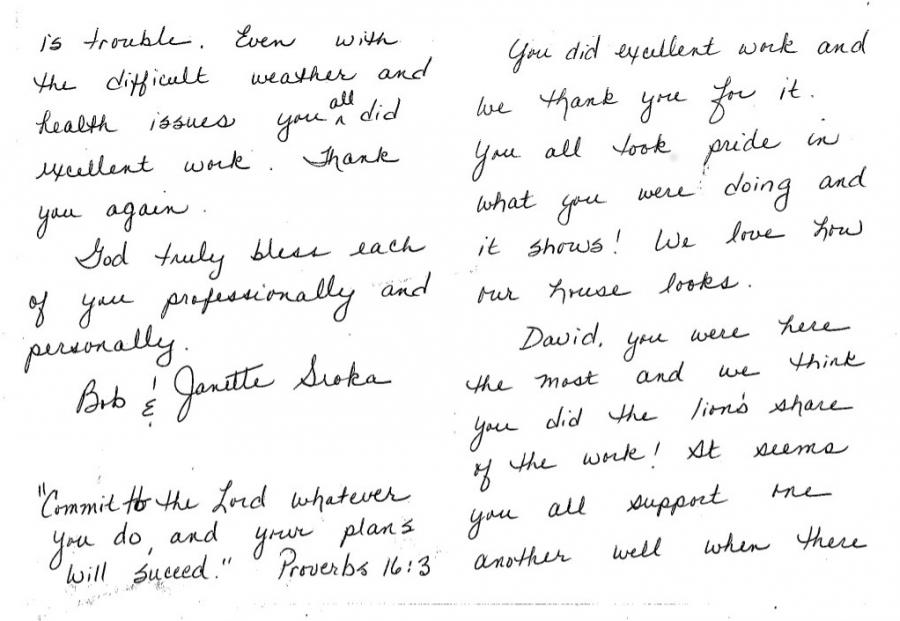 You did excellent work and
we thank you for it.
You all took pride in
what you were doing and
it shows! We love how
our house looks.
David, you were here
the most and we think
you did the lion's share
of the work! It seems
you all support one
another well when there
is trouble. Even with
the difficult weather and
health issues you all did
excellent work. Thank
you again.
God truly bless each
of you professionally and
personally.
Bob & Janette Sroka
"Commit to the Lord whatever
you do, and your plans
will suceed." Proverbs 16:3